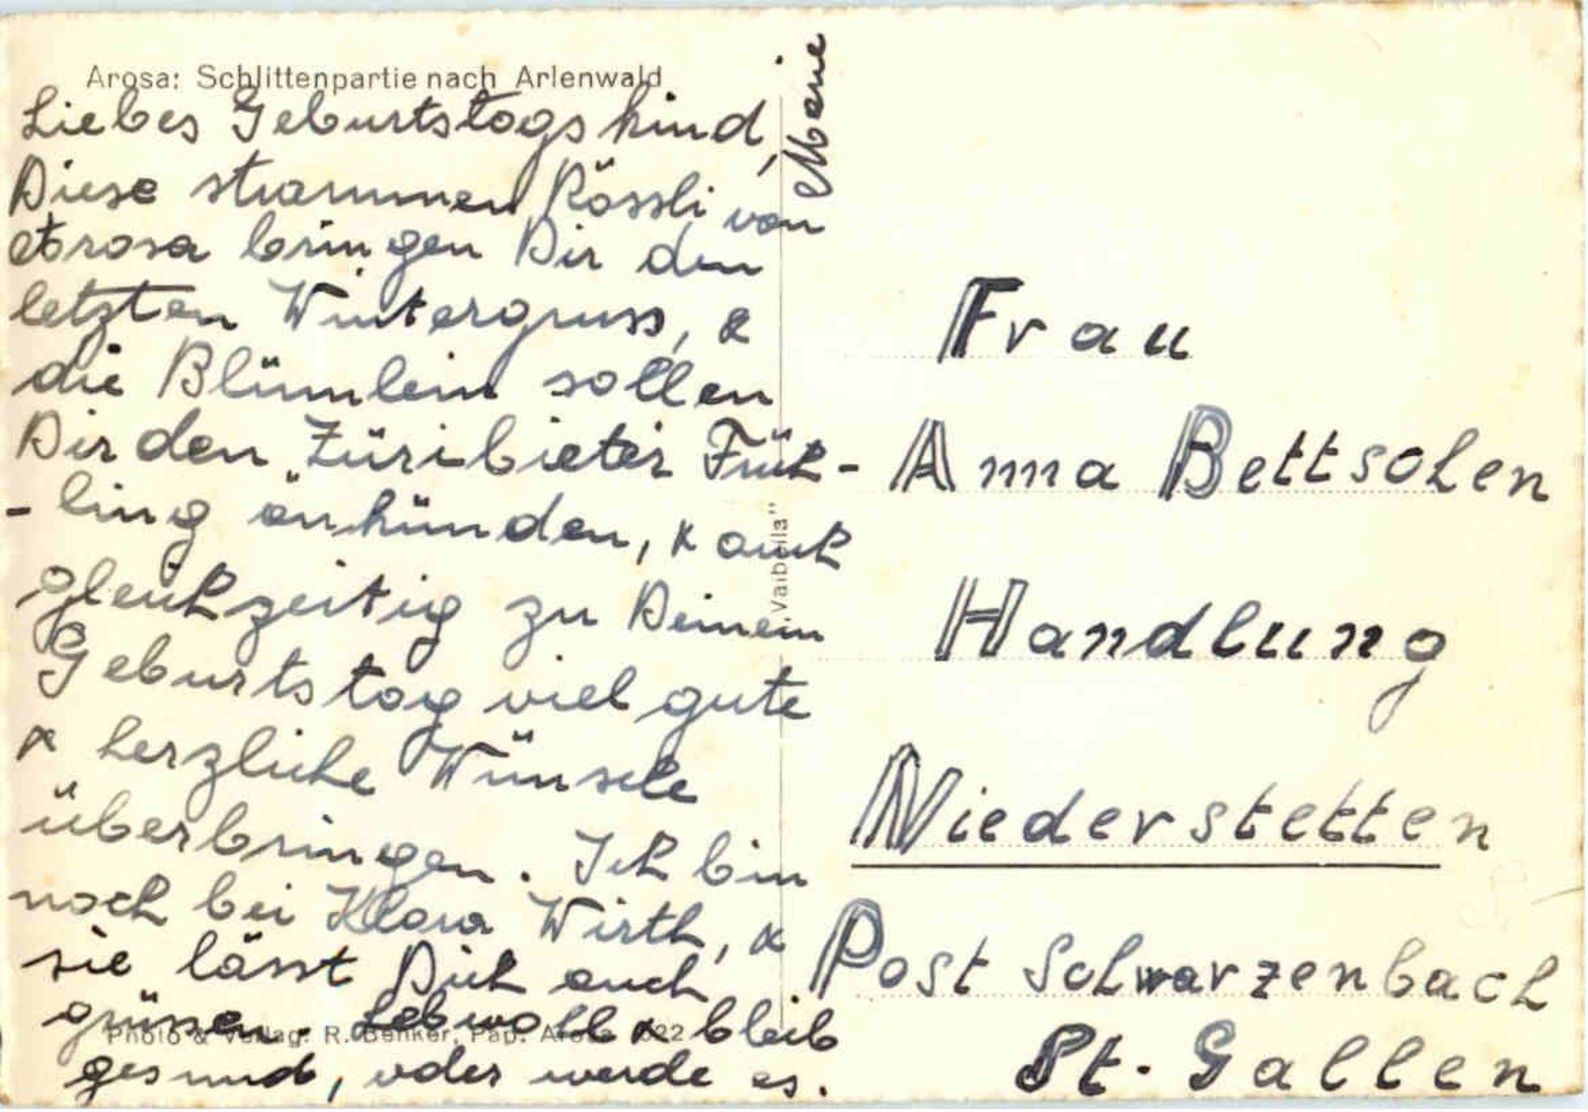 Arosa: Schlittenpartie nach Arlenwald
Liebes Geburtstagskind,
Diese strammen Rössli von
Arosa bringen Dir den
letzten Wintergruss, &
die Blümlein sollen
Dir den Züribieter Früh-
-ling ankünden, & auch
gleichzeitig zu Deinem
Geburtstag viel gute
& herzliche Wünsche
überbringen. Ich bin
noch bei Klara Wirth, &
sie lässt Dich auch
grüssen. Leb wohl & bleib
gesund, oder werde es.
Marie
Photo & Verlag: R. Benker, Pap. Arosa
Frau
Anna Bettschen
Handlung
Niederstetten
Post Schwarzenbach
St. Gallen